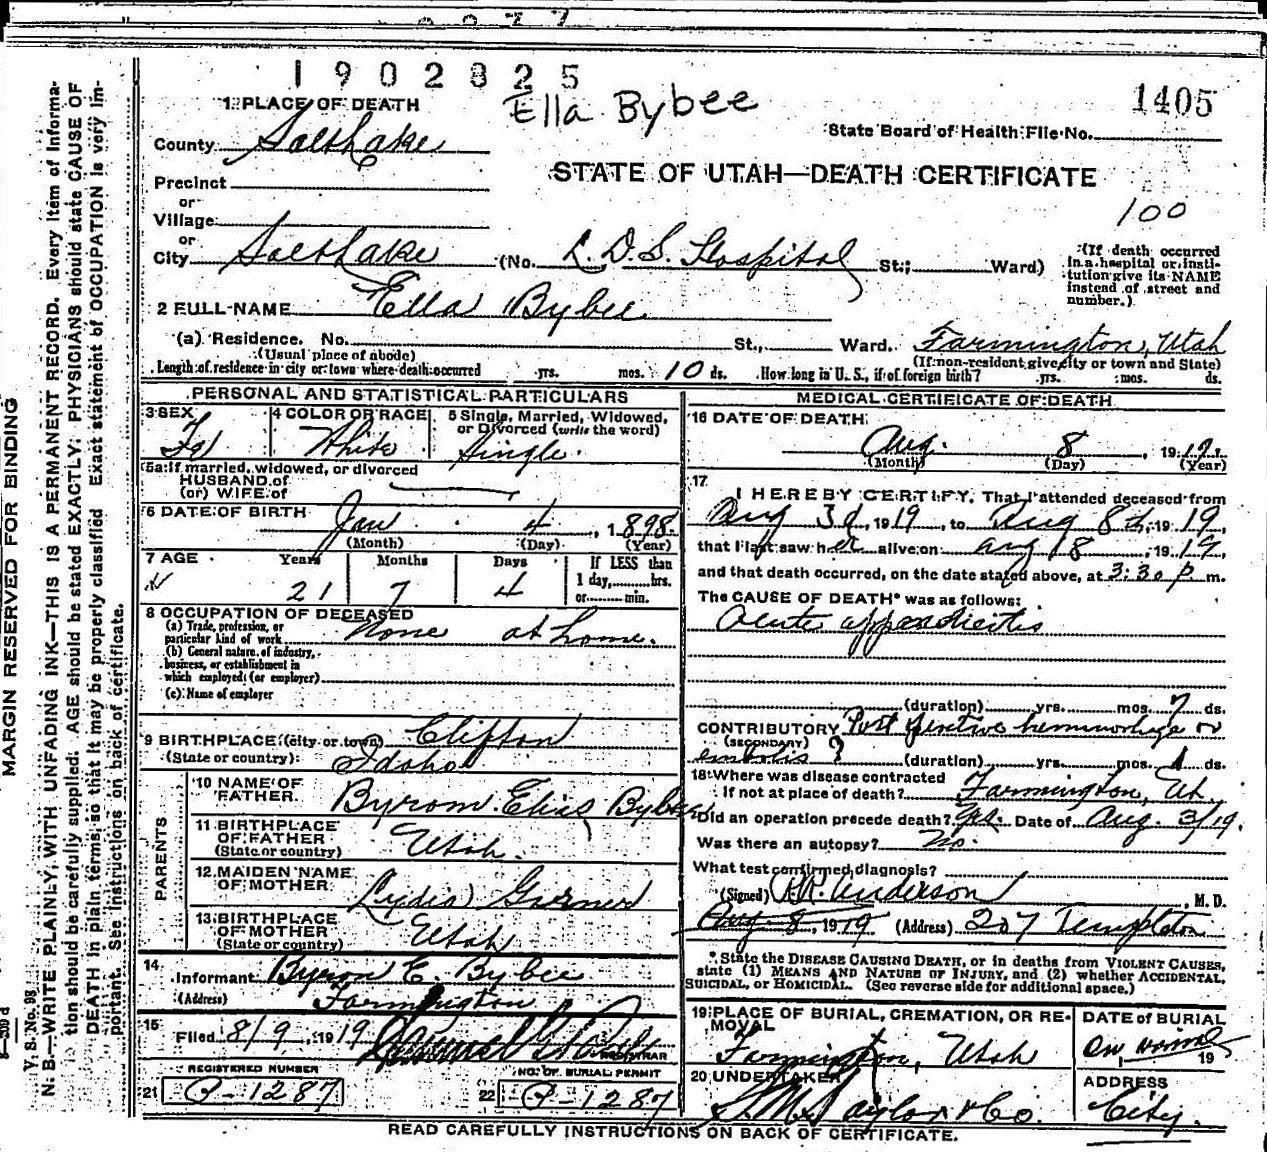 1902825
Ella Bybee
1405
1 PLACE OF DEATH
State Board of Health File No.
County Salt Lake
STATE OF UTAH—DEATH CERTIFICATE
Precinct
100
or
Village
or
City Salt Lake (No. L. D. S. Hospital St.; Ward)
(If death occurred in a hospital or institution give its NAME instead of street and number.)
2 FULL NAME Ella Bybee
(a) Residence. No. St., Ward. Farmington, Utah
(Usual place of abode) (If non-resident give city or town and State)
Length of residence in city or town where death occurred yrs. mos. 10 ds. How long in U. S., if of foreign birth? yrs. mos. ds.
PERSONAL AND STATISTICAL PARTICULARS
3 SEX
Fe
4 COLOR OR RACE
White
5 Single, Married, Widowed, or Divorced (write the word)
Single.
5a If married, widowed, or divorced
HUSBAND of
(or) WIFE of
6 DATE OF BIRTH
Jan 4, 1898.
(Month) (Day) (Year)
7 AGE Years Months Days If LESS than
1 day, hrs.
or min.
21 7 4
8 OCCUPATION OF DECEASED
(a) Trade, profession, or particular kind of work None at home.
(b) General nature of industry, business, or establishment in which employed (or employer)
(c) Name of employer
9 BIRTHPLACE (city or town) Clifton
(State or country) Idaho
PARENTS
10 NAME OF FATHER Byrom Elias Bybee
11 BIRTHPLACE OF FATHER (State or country) Utah.
12 MAIDEN NAME OF MOTHER Lydia
13 BIRTHPLACE OF MOTHER (State or country) Utah
14 Informant Byron E. Bybee
(Address) Farmington
15 Filed 8/9, 1919
REGISTRAR
REGISTERED NUMBER
21
1287
NO. OF BURIAL PERMIT
22
1287
MEDICAL CERTIFICATE OF DEATH
16 DATE OF DEATH
Aug. 8, 1919.
(Month) (Day) (Year)
17
I HEREBY CERTIFY, That I attended deceased from
Aug 3d, 1919, to Aug 8th, 1919,
that I last saw her alive on Aug 8, 1919,
and that death occurred, on the date stated above, at 3:30 p m.
The CAUSE OF DEATH* was as follows:
Acute appendicitis
(duration) yrs. mos. 7 ds.
CONTRIBUTORY Post operative hemorrhage or
(SECONDARY)
embolis ? (duration) yrs. mos. 1 ds.
18 Where was disease contracted
If not at place of death? Farmington, Ut.
Did an operation precede death? Yes. Date of Aug. 3/19.
Was there an autopsy? No.
What test confirmed diagnosis?
(Signed) Anderson, M. D.
Aug 8, 1919 (Address) 207 Templeton
* State the DISEASE CAUSING DEATH, or in deaths from VIOLENT CAUSES, state (1) MEANS AND NATURE OF INJURY, and (2) whether ACCIDENTAL, SUICIDAL, or HOMICIDAL. (See reverse side for additional space.)
19 PLACE OF BURIAL, CREMATION, OR REMOVAL
Farmington, Utah
DATE of BURIAL
On arrival 19
20 UNDERTAKER
S. M. Taylor & Co.
ADDRESS
City.
READ CAREFULLY INSTRUCTIONS ON BACK OF CERTIFICATE.
MARGIN RESERVED FOR BINDING
V. S. No. 98
N. B.—WRITE PLAINLY, WITH UNFADING INK—THIS IS A PERMANENT RECORD. Every item of information should be carefully supplied. AGE should be stated EXACTLY. PHYSICIANS should state CAUSE OF DEATH in plain terms, so that it may be properly classified. Exact statement of OCCUPATION is very important. See instructions on back of certificate.